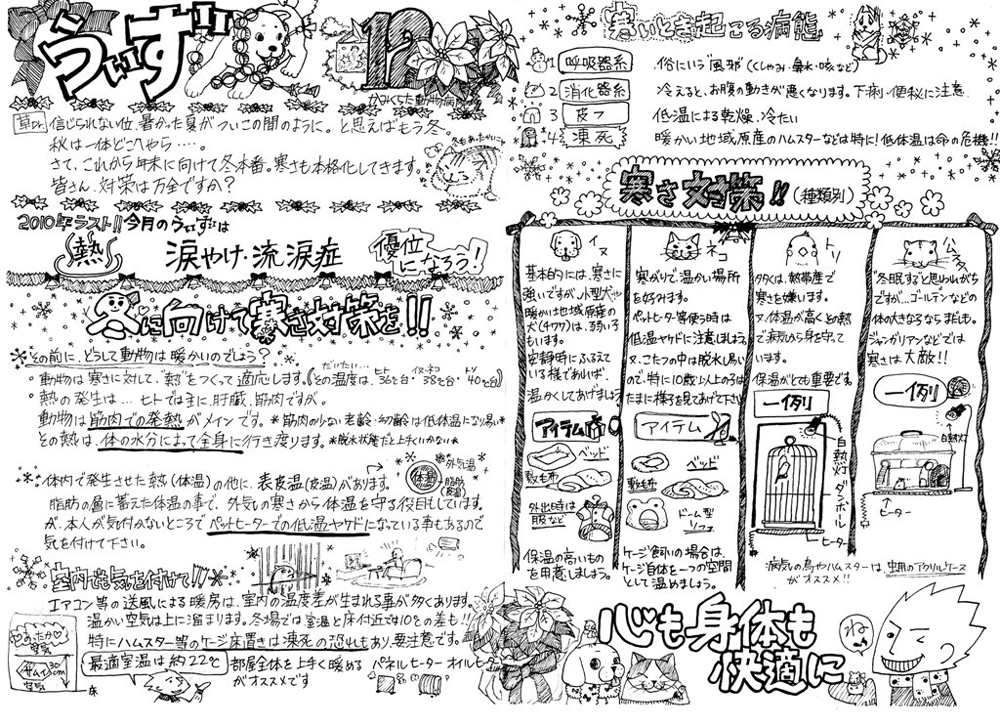 うぃず
12
かみくらた動物病院
信じられない位、暑かった夏がついこの間のように。と思えばもう冬。
秋は一体どこへやら….
さて、これから年末に向けて冬本番。寒さも本格化してきます。
皆さん、対策は万全ですか?
2010年ラスト!!今月のうぃずは
熱
涙やけ・流涙症
優位になろう!
冬に向けて寒さ対策を!!
その前に、どうして動物は暖かいのでしょう?
・動物は寒さに対して、"熱"をつくって適応します。(その温度は、ヒト36℃台・イヌ・ネコ38℃台・トリ40℃台)
だいたい…
・熱の発生は…ヒトでは主に、肝臓、筋肉ですが、
動物は筋肉での発熱がメインです。*筋肉の少ない老齢・幼齢は低体温となり易い*
・その熱は、体の水分によって全身に行き渡ります。*脱水状態だと上手くいかない*
・体内で発生させた熱(体温)の他に、表皮温(皮温)があります。
外気温
体温
脂肪
(皮温)
脂肪の層に蓄えた体温の事で、外気の寒さから体温を守る役目をしています。
が、本人が気付かないところでペットヒーターでの低温ヤケドになっている事もあるので
気を付けて下さい。
室内でも気を付けて!!
エアコン等の送風による暖房は、室内の温度差が生まれる事が多くあります。
温かい空気は上に溜まります。冬場では室温と床付近で10℃の差も!!
特にハムスター等のケージ床置きは凍死の恐れもあり、要注意です。
あったか
空気
サムイ
30cm
空気
床
最適室温は約22℃
部屋全体を上手く暖める パネルヒーター オイルヒーター
がオススメです
寒いとき起こる病態
1 呼吸器系 .俗にいう"風邪"(くしゃみ・鼻水・咳など)
2 消化器系 .冷えると、お腹の動きが悪くなります。下痢・便秘に注意.
3 皮フ 低温による乾燥、冷たい
4 凍死 暖かい地域原産のハムスターなどは特に!低体温は命の危機!!
寒さ対策!!(種類別)
イヌ
基本的には、寒さに
強いですが、小型犬や
暖かい地域原産の
犬(チワワ)は、弱い子
もいます。
安静時にふるえて
いる様であれば、
温かくしてあげましょう
アイテム
ベッド
敷毛布
外出時は
服など
保温の高いもの
を用意しましょう。
ネコ
寒がりで温かい場所
を好みます。
ペットヒーター等使う時は
低温ヤケドに注意しましょう
又、こたつの中は脱水し易い
ので、特に10歳以上の子は
たまに様子を見てあげて下さい
アイテム
ベッド
敷毛布
ドーム型
ソファ
ケージ飼いの場合は、
ケージ自体を一つの空間
として温めましょう。
トリ
多くは、熱帯産で
寒さを嫌います。
又、体温が高くその熱
で病気から身を守って
います。
保温がとても重要です。
一例
白熱灯
ダンボール
ヒーター
ハムスター
"冬眠すると思われがち
ですが…ゴールデンなどの
体の大きな子ならまだしも。
ジャンガリアンなどでは
寒さは大敵!!
一例
白熱灯
ヒーター
病気の鳥やハムスターは、虫用のアクリルケース
がオススメ!!
心も身体も
快適に
ね